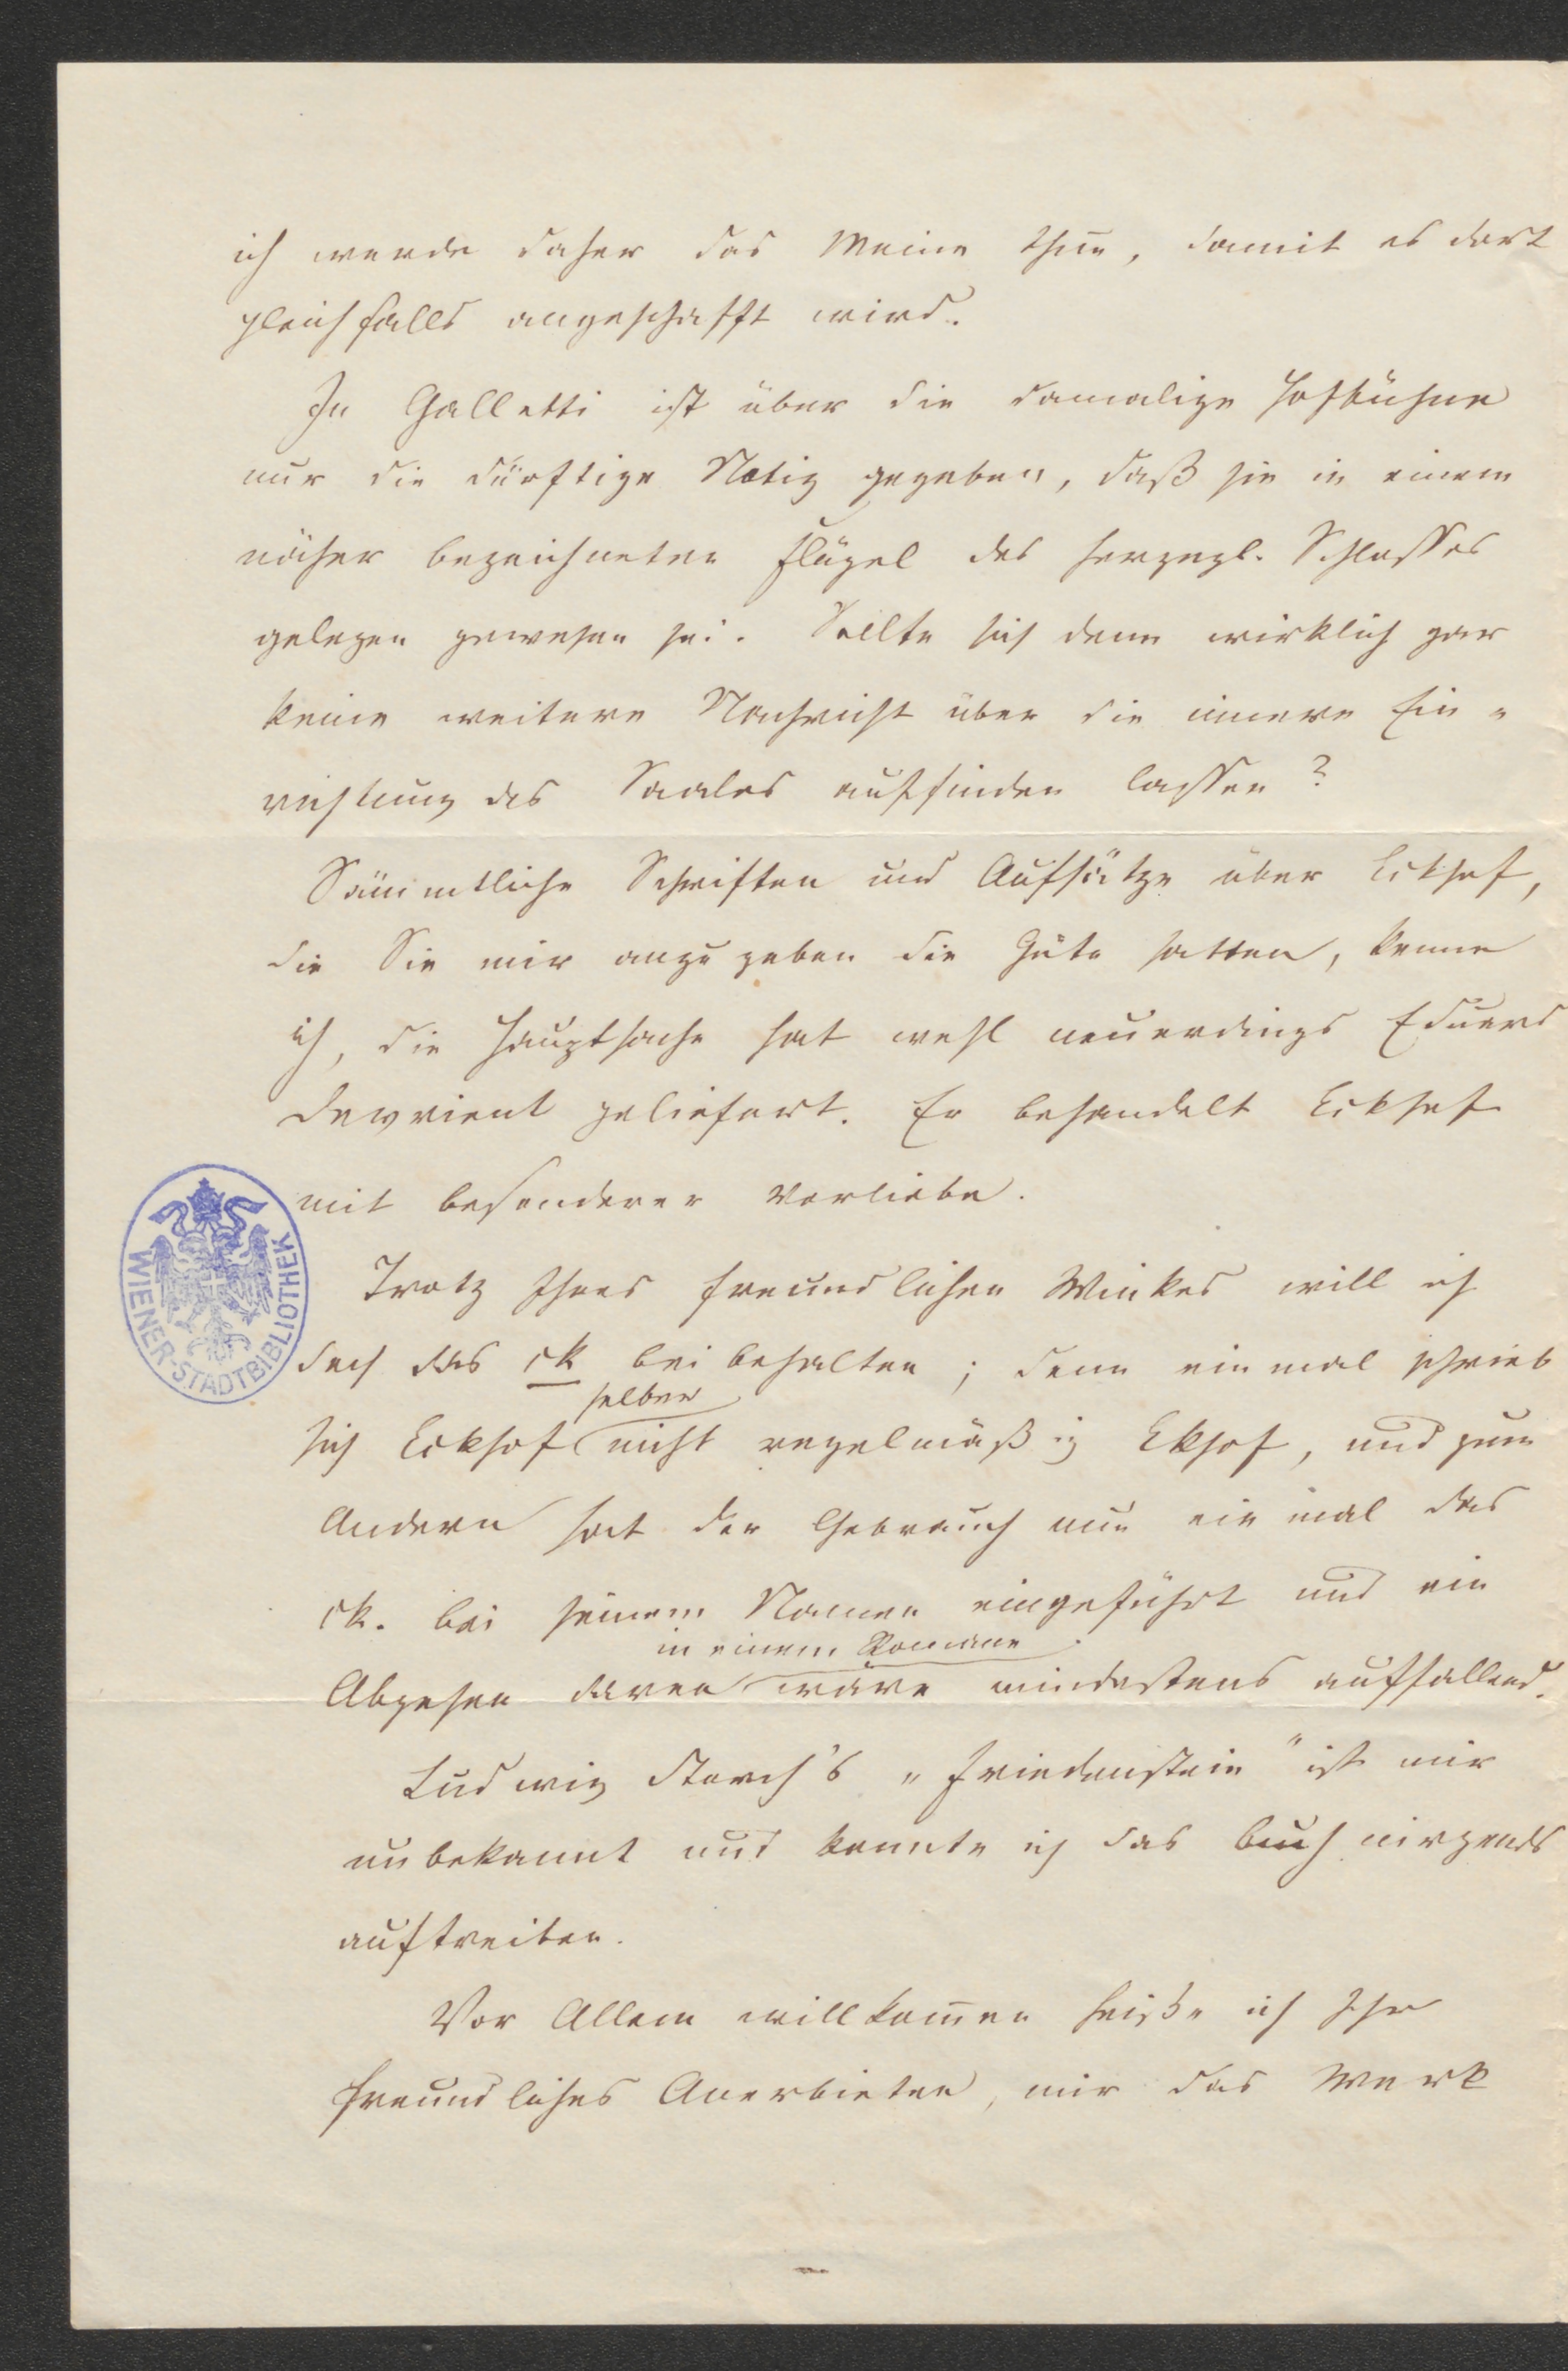 ich werde daher das Meine thun, damit es dort
gleichfalls angeschafft wird.
In Galletti ist über die damalige Hofbühne
nur die dürftige Notiz gegeben, daß sie in einem
näher bezeichneten Flügel des herzogl. Schlosses
gelegen gewesen sei. Sollte sich denn wirklich gar
keine weitere Nachricht über die innere Ein-
richtung des Saales auffinden lassen?
Sämmtliche Schriften und Aufsätze über Eckhof,
die Sie mir anzugeben die Güte hatten, kenne
ich, die Hauptsache hat wohl neuerdings Eduard
Devrient geliefert. Er behandelt Eckhof
mit besonderer Vorliebe.
Trotz Ihres freundlichen Winkes will ich
doch das ck beibehalten; denn einmal schrieb
selber
sich Eckhof nicht regelmäßig Ekhof, und zum
Andern hat der Gebrauch nun einmal das
ck. bei seinem Namen eingeführt und ein
in einem Romane
Abgehen davon wäre mindestens auffallend.
Ludwig Storch's „Friedenstein" ist mir
unbekannt und konnte ich das Buch nirgends
auftreiben.
Vor Allem willkom̅en heiße ich Ihr
freundliches Anerbieten, mir das Werk
WIENER-STADTBIBLIOTHEK